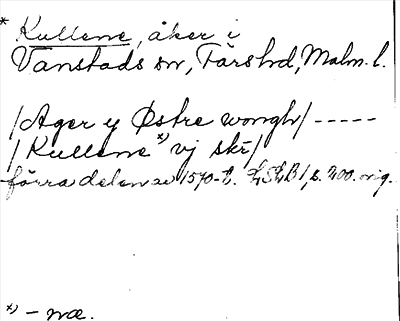 * Kullene, åker i
Vanstads sn, Färs hd, Malm. l.
/Ager y Østre wongh/ -----
/Kullene x) vj skr/
förra delen av 1570-t. LSLB 1, s. 200. orig.
x) - næ.